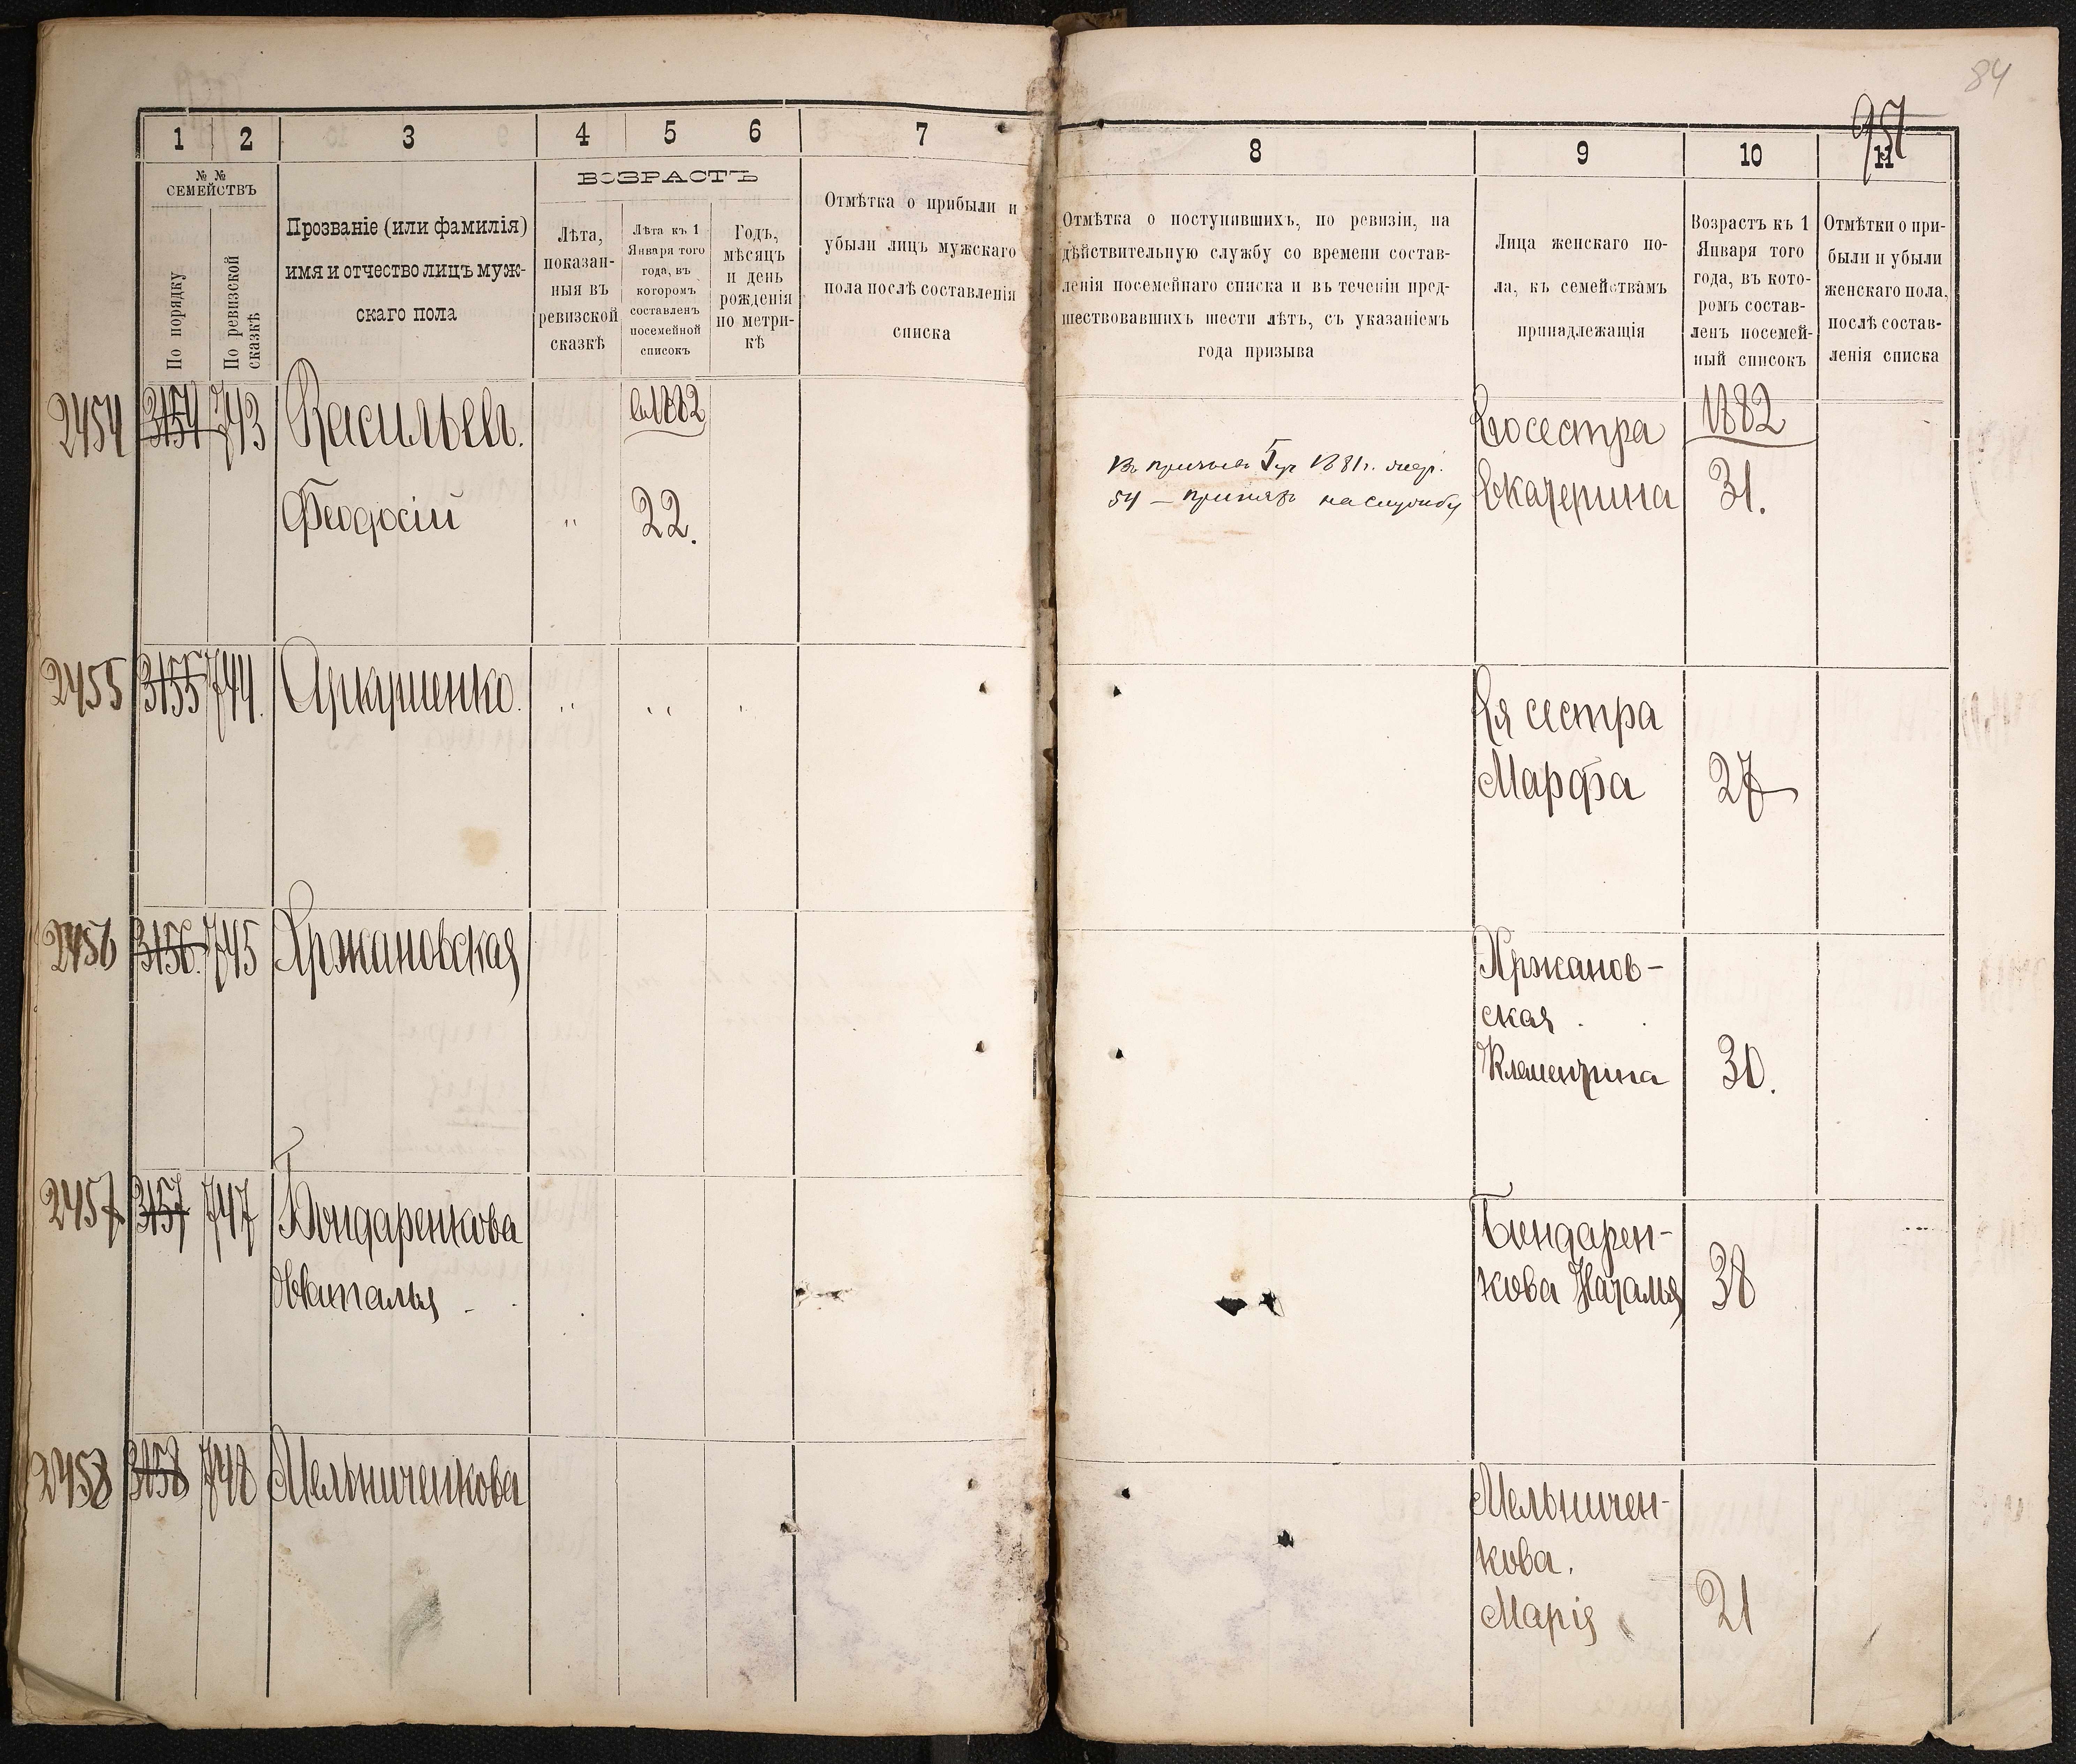 84
957
1 2 3 4 5 6 7
8 9 10 11
№ №
СЕМЕЙСТВЪ
По порядку
По ревизской
сказкѣ
Прозваніе (или фамилія)
имя и отчество лицъ муж-
скаго пола
ВОЗРАСТЪ
Лѣта,
показан-
ныя въ
ревизской
сказкѣ
Лѣта къ 1
Января того
года, въ
которомъ
составленъ
посемейной
списокъ
Годъ,
мѣсяцъ
и день
рожденія
по метри-
кѣ
Отмѣтка о прибыли и
убыли лицъ мужскаго
пола послѣ составленія
списка
Отмѣтка о поступившихъ, по ревизіи, на
дѣйствительную службу со времени состав-
ленія посемейнаго списка и въ теченіи пред-
шествовавшихъ шести лѣтъ, съ указаніемъ
года призыва
Лица женскаго по-
ла, къ семействамъ
принадлежащія
Возрастъ къ 1
Января того
года, въ кото-
ромъ состав-
ленъ посемей-
ный списокъ
Отмѣтки о при-
были и убыли
женскаго пола,
послѣ состав-
ленія списка
2454 3154 743 Васильевъ.
1882
Феодосій " 22.
Въ призывъ 1881г.
54 — принятъ на службу
Его сестра 1882
Екатерина 31.
2455 3155 744.
Ея сестра
Марфа 27
2456 3156. 745 Хржановская
Хржанов-
ская
Клементина 30.
2457 3157 747 Бондаренкова
Наталья
Бондарен-
кова Наталья 38
2458 3158 748 Мельниченкова
Мельничен-
кова.
Марія 21